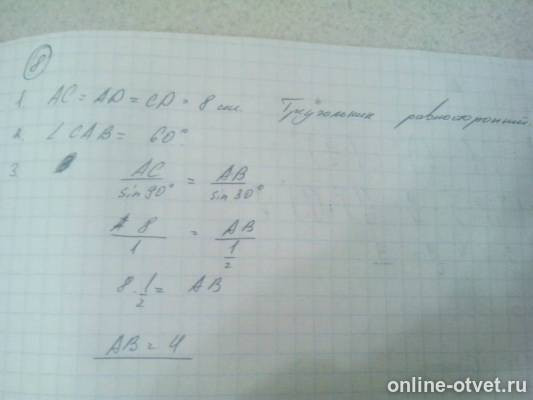 8
1. AC = AD = CD = 8 см. Треугольник равносторонний
2. ∠CAB = 60°
3.
AC / sin 90° = AB / sin 30°
8 / 1 = AB / 1/2
8 · 1/2 = AB
AB = 4
online-otvet.ru